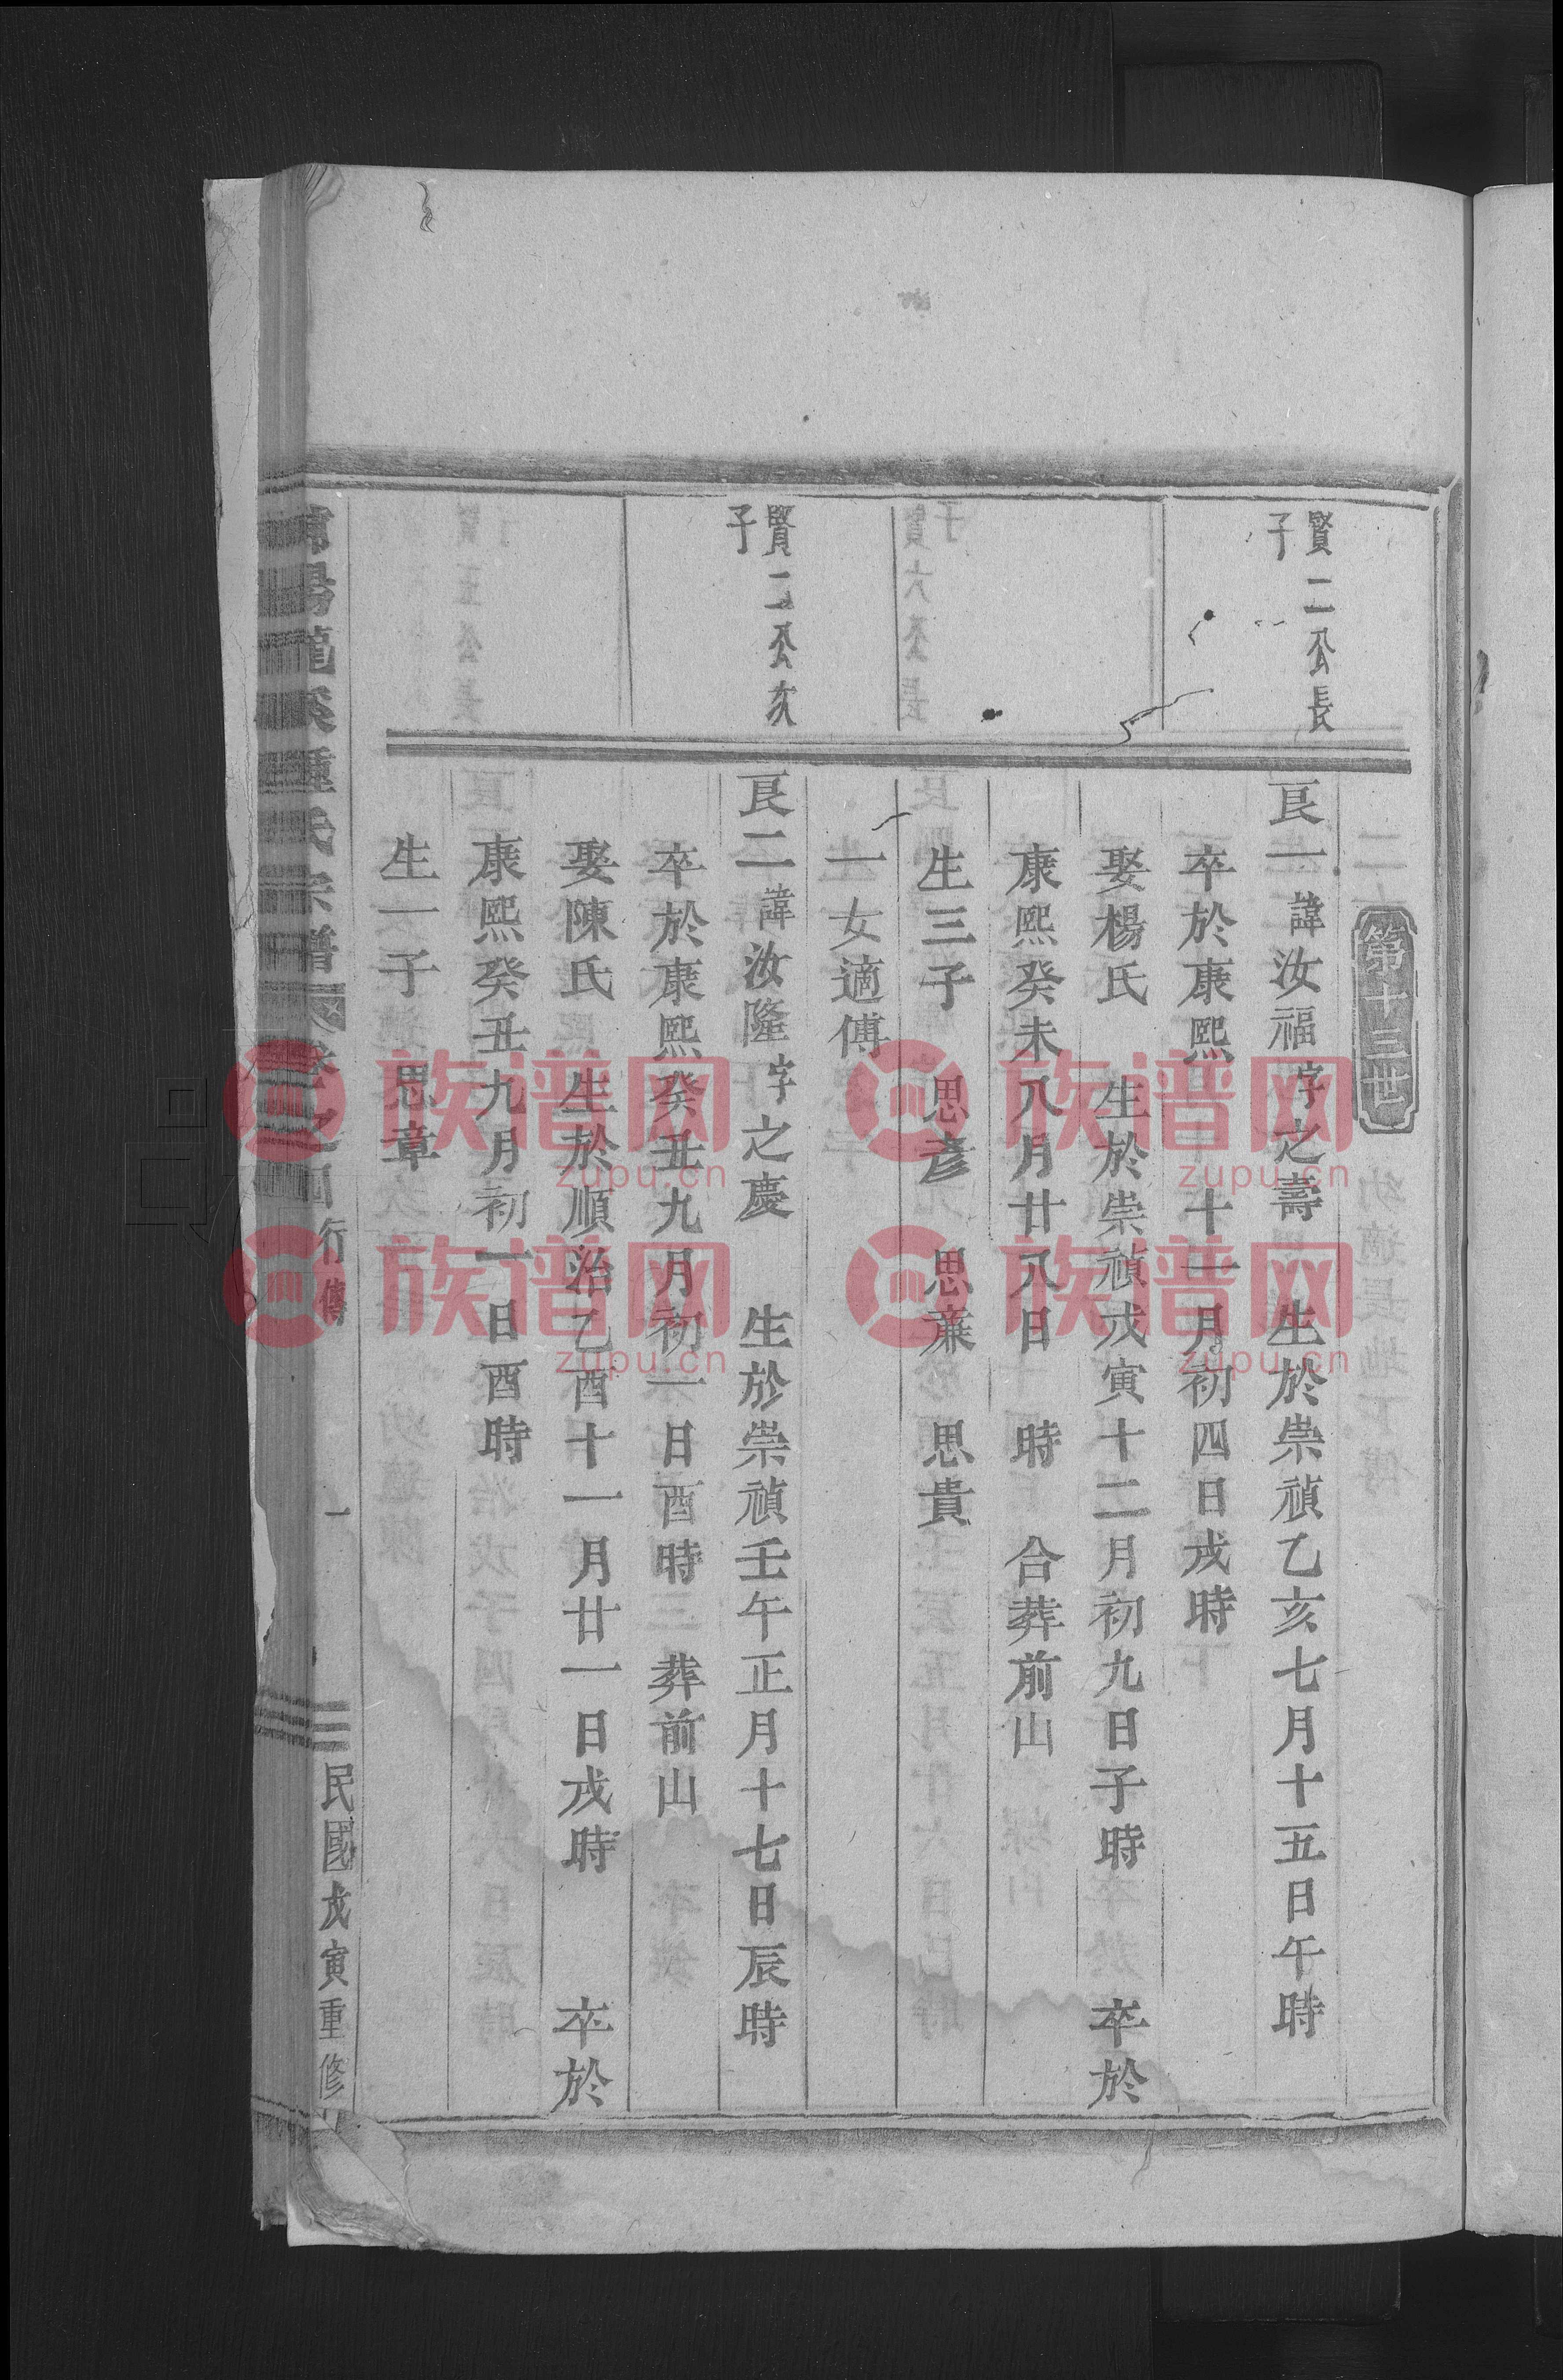 第十三世
賢二公長
子
良一諱汝福字之壽 生於崇禎乙亥七月十五日午時
卒於康熙 十一月初四日戌時
娶楊氏 生於崇禎戊寅十二月初九日子時 卒於
康熙癸未八月廿八日 時 合葬前山
生三子 思彥 思蕭 思貴
一女適傅
賢二公次
子
良二諱汝隆字之慶 生於崇禎壬午正月十七日辰時
卒於康熙癸丑九月初一日酉時 葬前山
娶陳氏 生於順治乙酉十一月廿一日戌時 卒於
康熙癸丑九月初一日酉時
生一子 思章
陽龍溪鍾氏宗譜 卷之四 行傳 一 民國戊寅重修
族谱网
zupu.cn
族谱网
zupu.cn
族谱网
zupu.cn
族谱网
zupu.cn